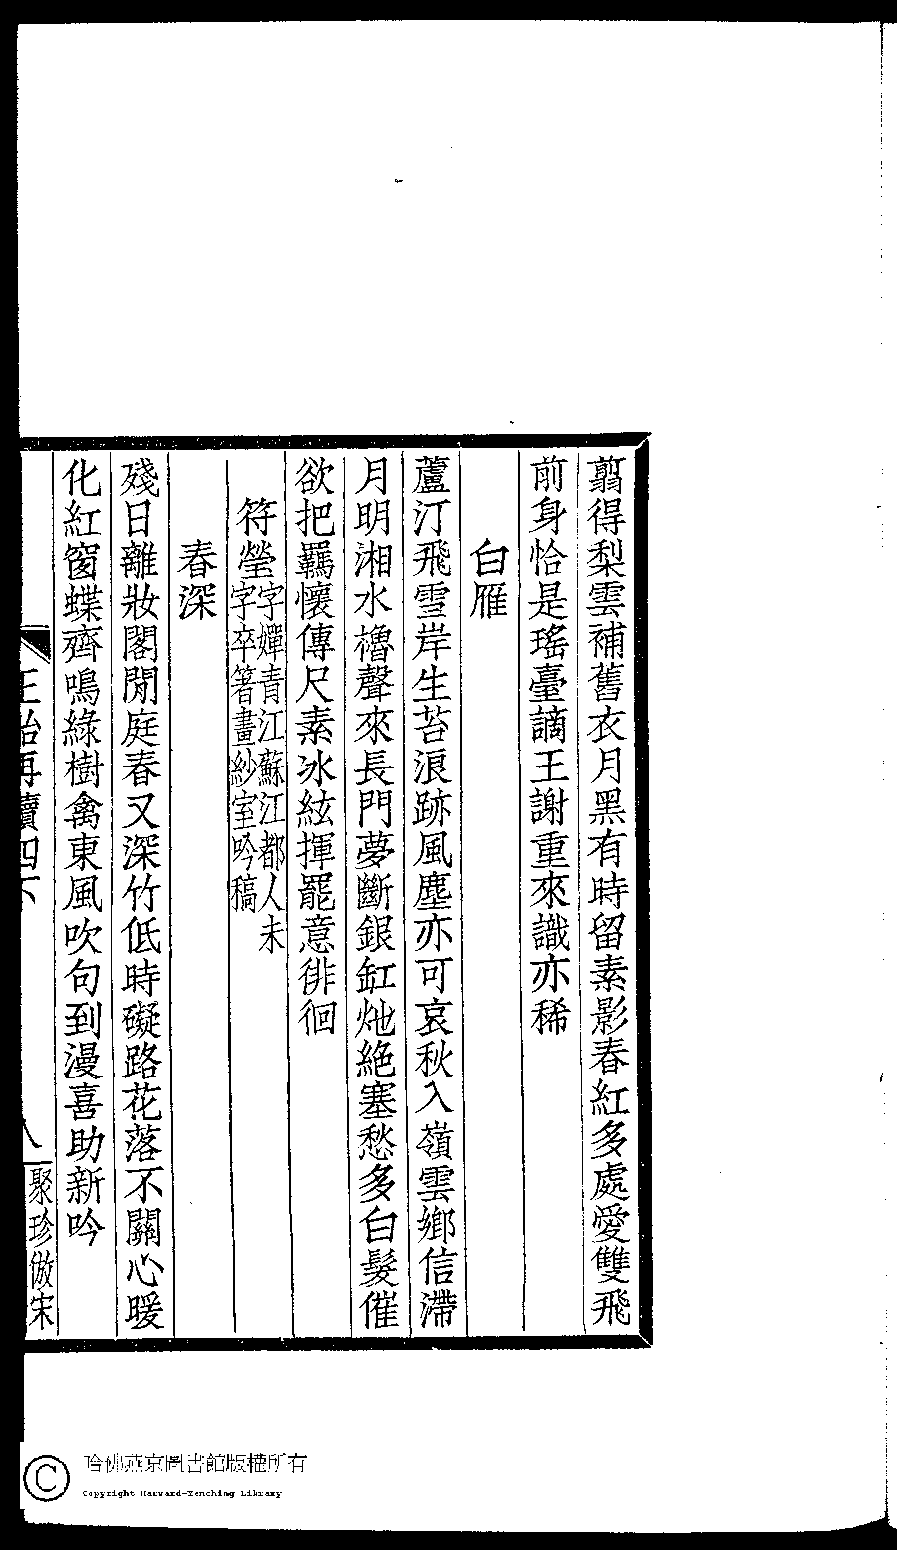 翦得梨雲補舊衣月黑有時留素影春紅多處愛雙飛
前身恰是瑤臺謫王謝重來識亦稀
白雁
蘆汀飛雪岸生苔浪跡風塵亦可哀秋入嶺雲鄉信滯
月明湘水櫓聲來長門夢斷銀缸灺絕塞愁多白髮催
欲把羈懷傳尺素冰絃揮罷意徘徊
符瑩字嬋青江蘇江都人未
字卒箸畫紗室吟稿
春深
殘日離妝閣閒庭春又深竹低時礙路花落不關心暖
化紅窗蝶齊鳴綠樹禽東風吹句到漫喜助新吟
再續四下
八
聚珍倣宋
哈佛燕京圖書館版權所有
Copyright Harvard-Yenching Library